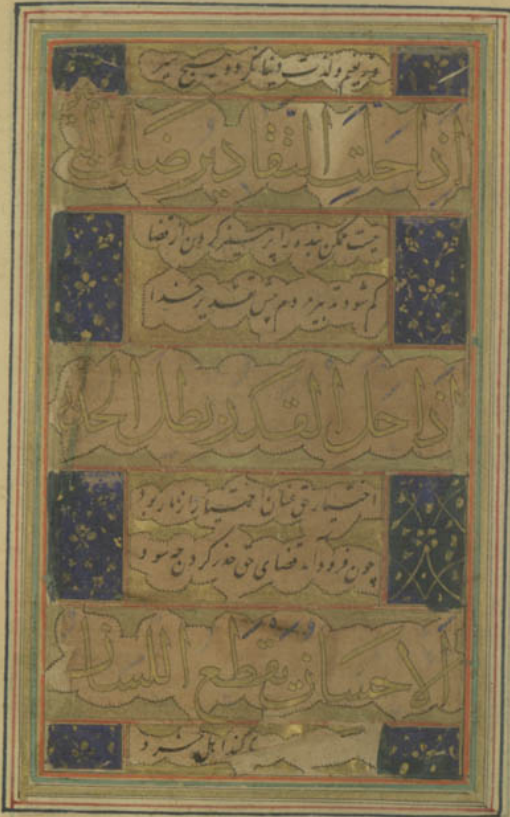 إذا حلت التقادير ضلت
نیست ممکن بنده را پرهیز کردن از قضا
گم شود تدبیر مردم پیش تقدیر خدا
إذا حل القدر بطل الحذر
اختیار حق عنان اختیار از ما ربود
چون فرود آمد قضای حق حذر کردن چه سود
الإحسان يقطع اللسان